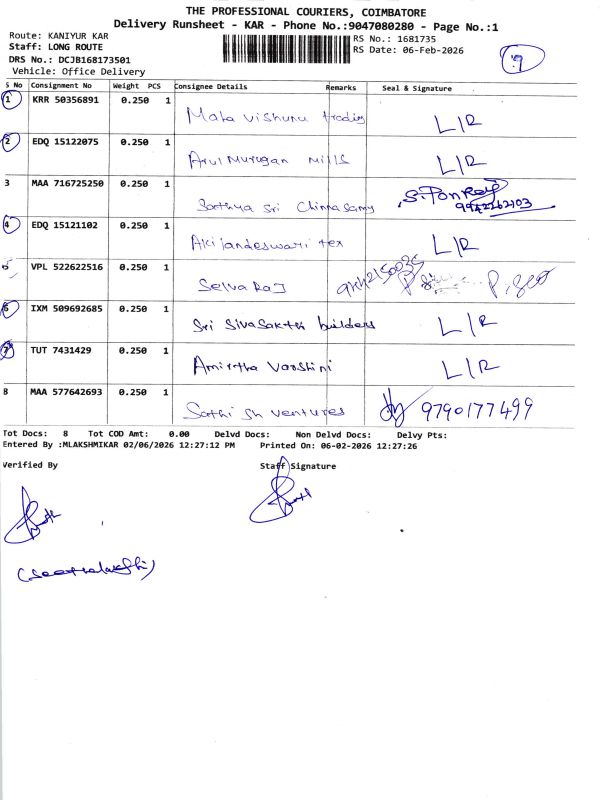 THE PROFESSIONAL COURIERS, COIMBATORE
Delivery Runsheet - KAR - Phone No.:9047080280 - Page No.:1
Route: KANIYUR KAR
RS No.: 1681735
Staff: LONG ROUTE
RS Date: 06-Feb-2026
DRS No.: DCJB168173501
Vehicle: Office Delivery
S No Consignment No Weight PCS Consignee Details Remarks Seal & Signature
1 KRR 50356891 0.250 1 Maha Vishunu trading L/R
2 EDQ 15122075 0.250 1 Arul Murugan Mills L/R
3 MAA 716725250 0.250 1 Sathya Sri Chinnasamy 9942262103
4 EDQ 15121102 0.250 1 Akilandeswari tex L/R
5 VPL 522622516 0.250 1 Selva Raj
6 IXM 509692685 0.250 1 Sri Sivasakthi builders L/R
7 TUT 7431429 0.250 1 Amirtha Varshini L/R
8 MAA 577642693 0.250 1 Sathish ventures 9790177499
Tot Docs: 8 Tot COD Amt: 0.00 Delvd Docs: Non Delvd Docs: Delvy Pts:
Entered By :MLAKSHMIKAR 02/06/2026 12:27:12 PM Printed On: 06-02-2026 12:27:26
Verified By Staff Signature